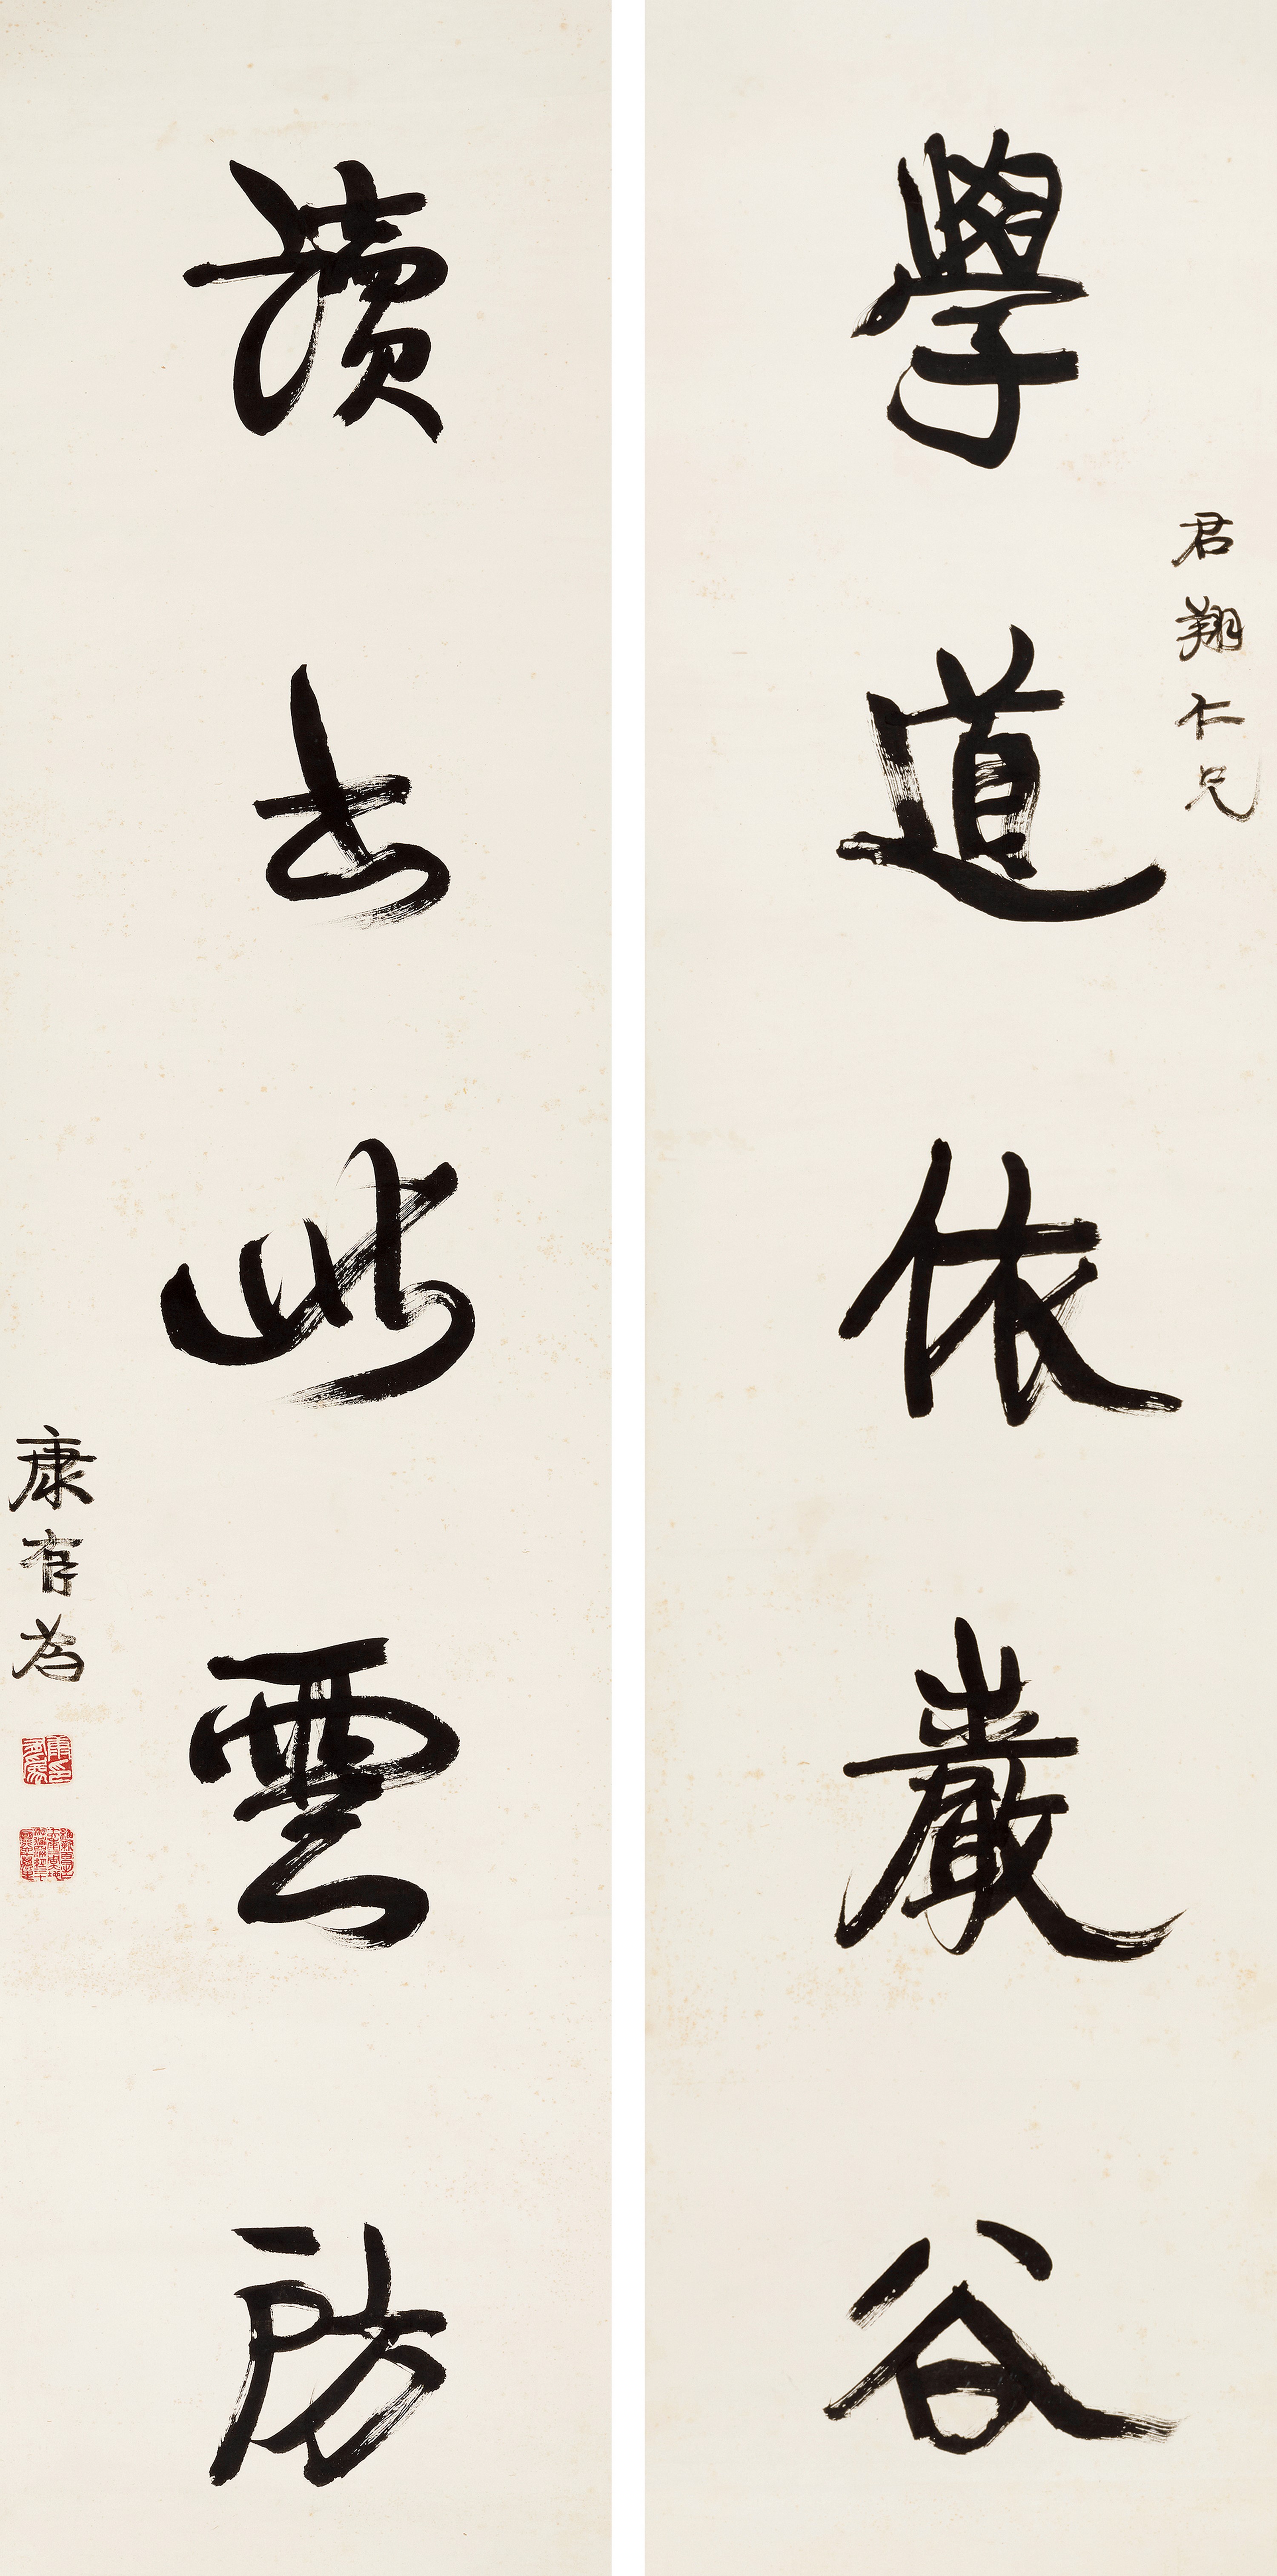 學道依巖谷
君翔仁兄
讀書此雲房
康有為
康有為印